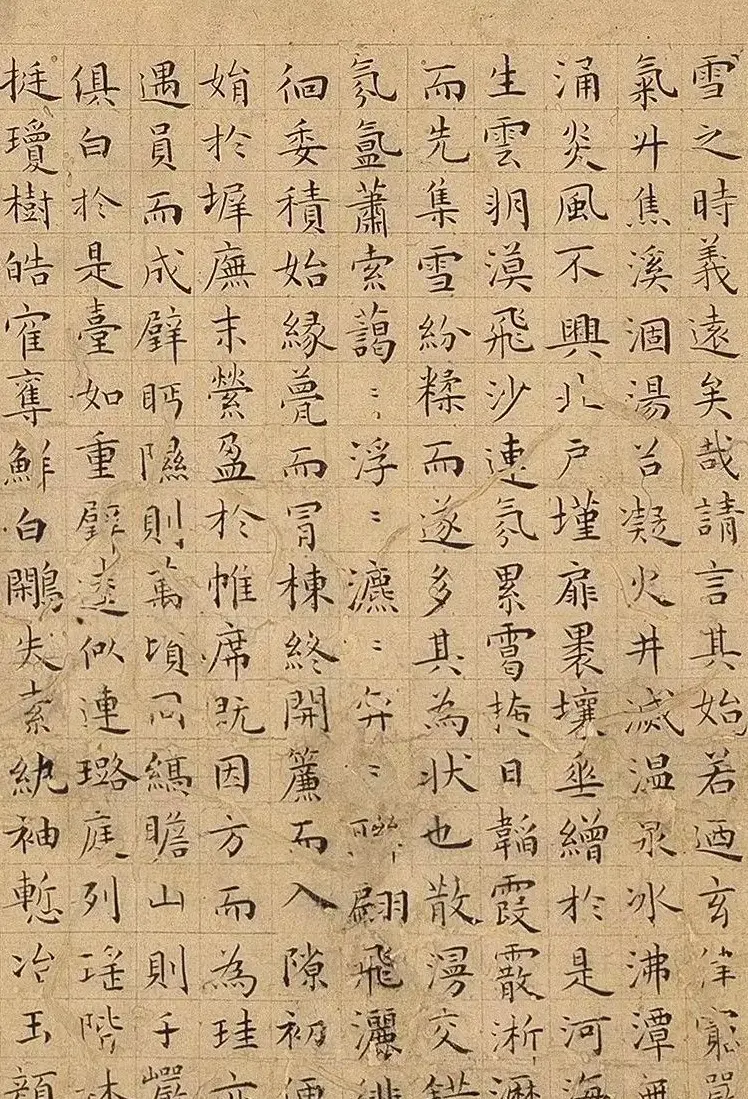 雪之時義遠矣哉請言其始若迺玄律窮嚴
氣升焦溪涸湯谷凝火井滅温泉冰沸潭無
涌炎風不興北戶墐扉裹壤垂繒於是河海
生雲朔漠飛沙連氛累靄掩日韜霞霰淅瀝
而先集雪紛糅而遂多其為狀也散漫交錯
氛氳蕭索藹〻浮〻瀌〻弈〻聯翩飛灑徘
徊委積始緣甍而冒棟終開簾而入隙初便
娟於墀廡末縈盈於帷席既因方而為珪亦
遇員而成璧眄隰則萬頃同縞瞻山則千巖
俱白於是臺如重璧逵似連璐庭列瑤階林
挺瓊樹皓隺奪鮮白鷴失素紈袖慙冶玉顏